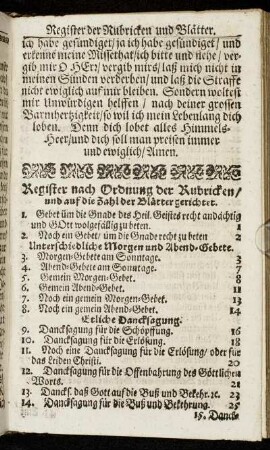 Register der Rubricken und Blätter.
ich habe gesündiget/ ja ich habe gesündiget/ und
erkenne meine Missethat/ ich bitte und flehe/ ver-
gib mir O HErr/ vergib mirs/ laß mich nicht in
meinen Sünden verderben/ und laß die Straffe
nicht ewiglich auf mir bleiben. Sondern woltest
mir Unwürdigen helffen/ nach deiner grossen
Barmhertzigkeit/ so wil ich mein Lebenlang dich
loben. Denn dich lobet alles Himmels-
Heer/ und dich soll man preisen immer
und ewiglich/ Amen.
Register nach Ordnung der Rubricken/
und auf die Zahl der Blätter gerichtet.
1. Gebet üm die Gnade des Heil. Geistes recht andächtig
und GOtt wolgefällig zu beten. 1
2. Noch ein Gebet/ üm die Gnade recht zu beten 2
Unterschiedliche Morgen und Abend-Gebete.
3. Morgen-Gebete am Sonntage. 3
4. Abend-Gebete am Sonntage. 7
5. Gemein Morgen-Gebet. 8
6. Gemein Abend-Gebet. 11
7. Noch ein gemein Morgen-Gebet. 13
8. Noch ein gemein Abend-Gebet. 14
Etliche Dancksagung.
9. Dancksagung für die Schöpffung. 16
10. Dancksagung für die Erlösung. 18
11. Noch eine Dancksagung für die Erlösung/ oder für
das Leiden Christi. 20
12. Dancksagung für die Offenbahrung des Göttlichen
Worts. 21
13. Dancks. daß Gott auf die Buß und Bekehr. ꝛc. 23
14. Dancksagung für die Buß und Bekehrung. 25
15. Danck-